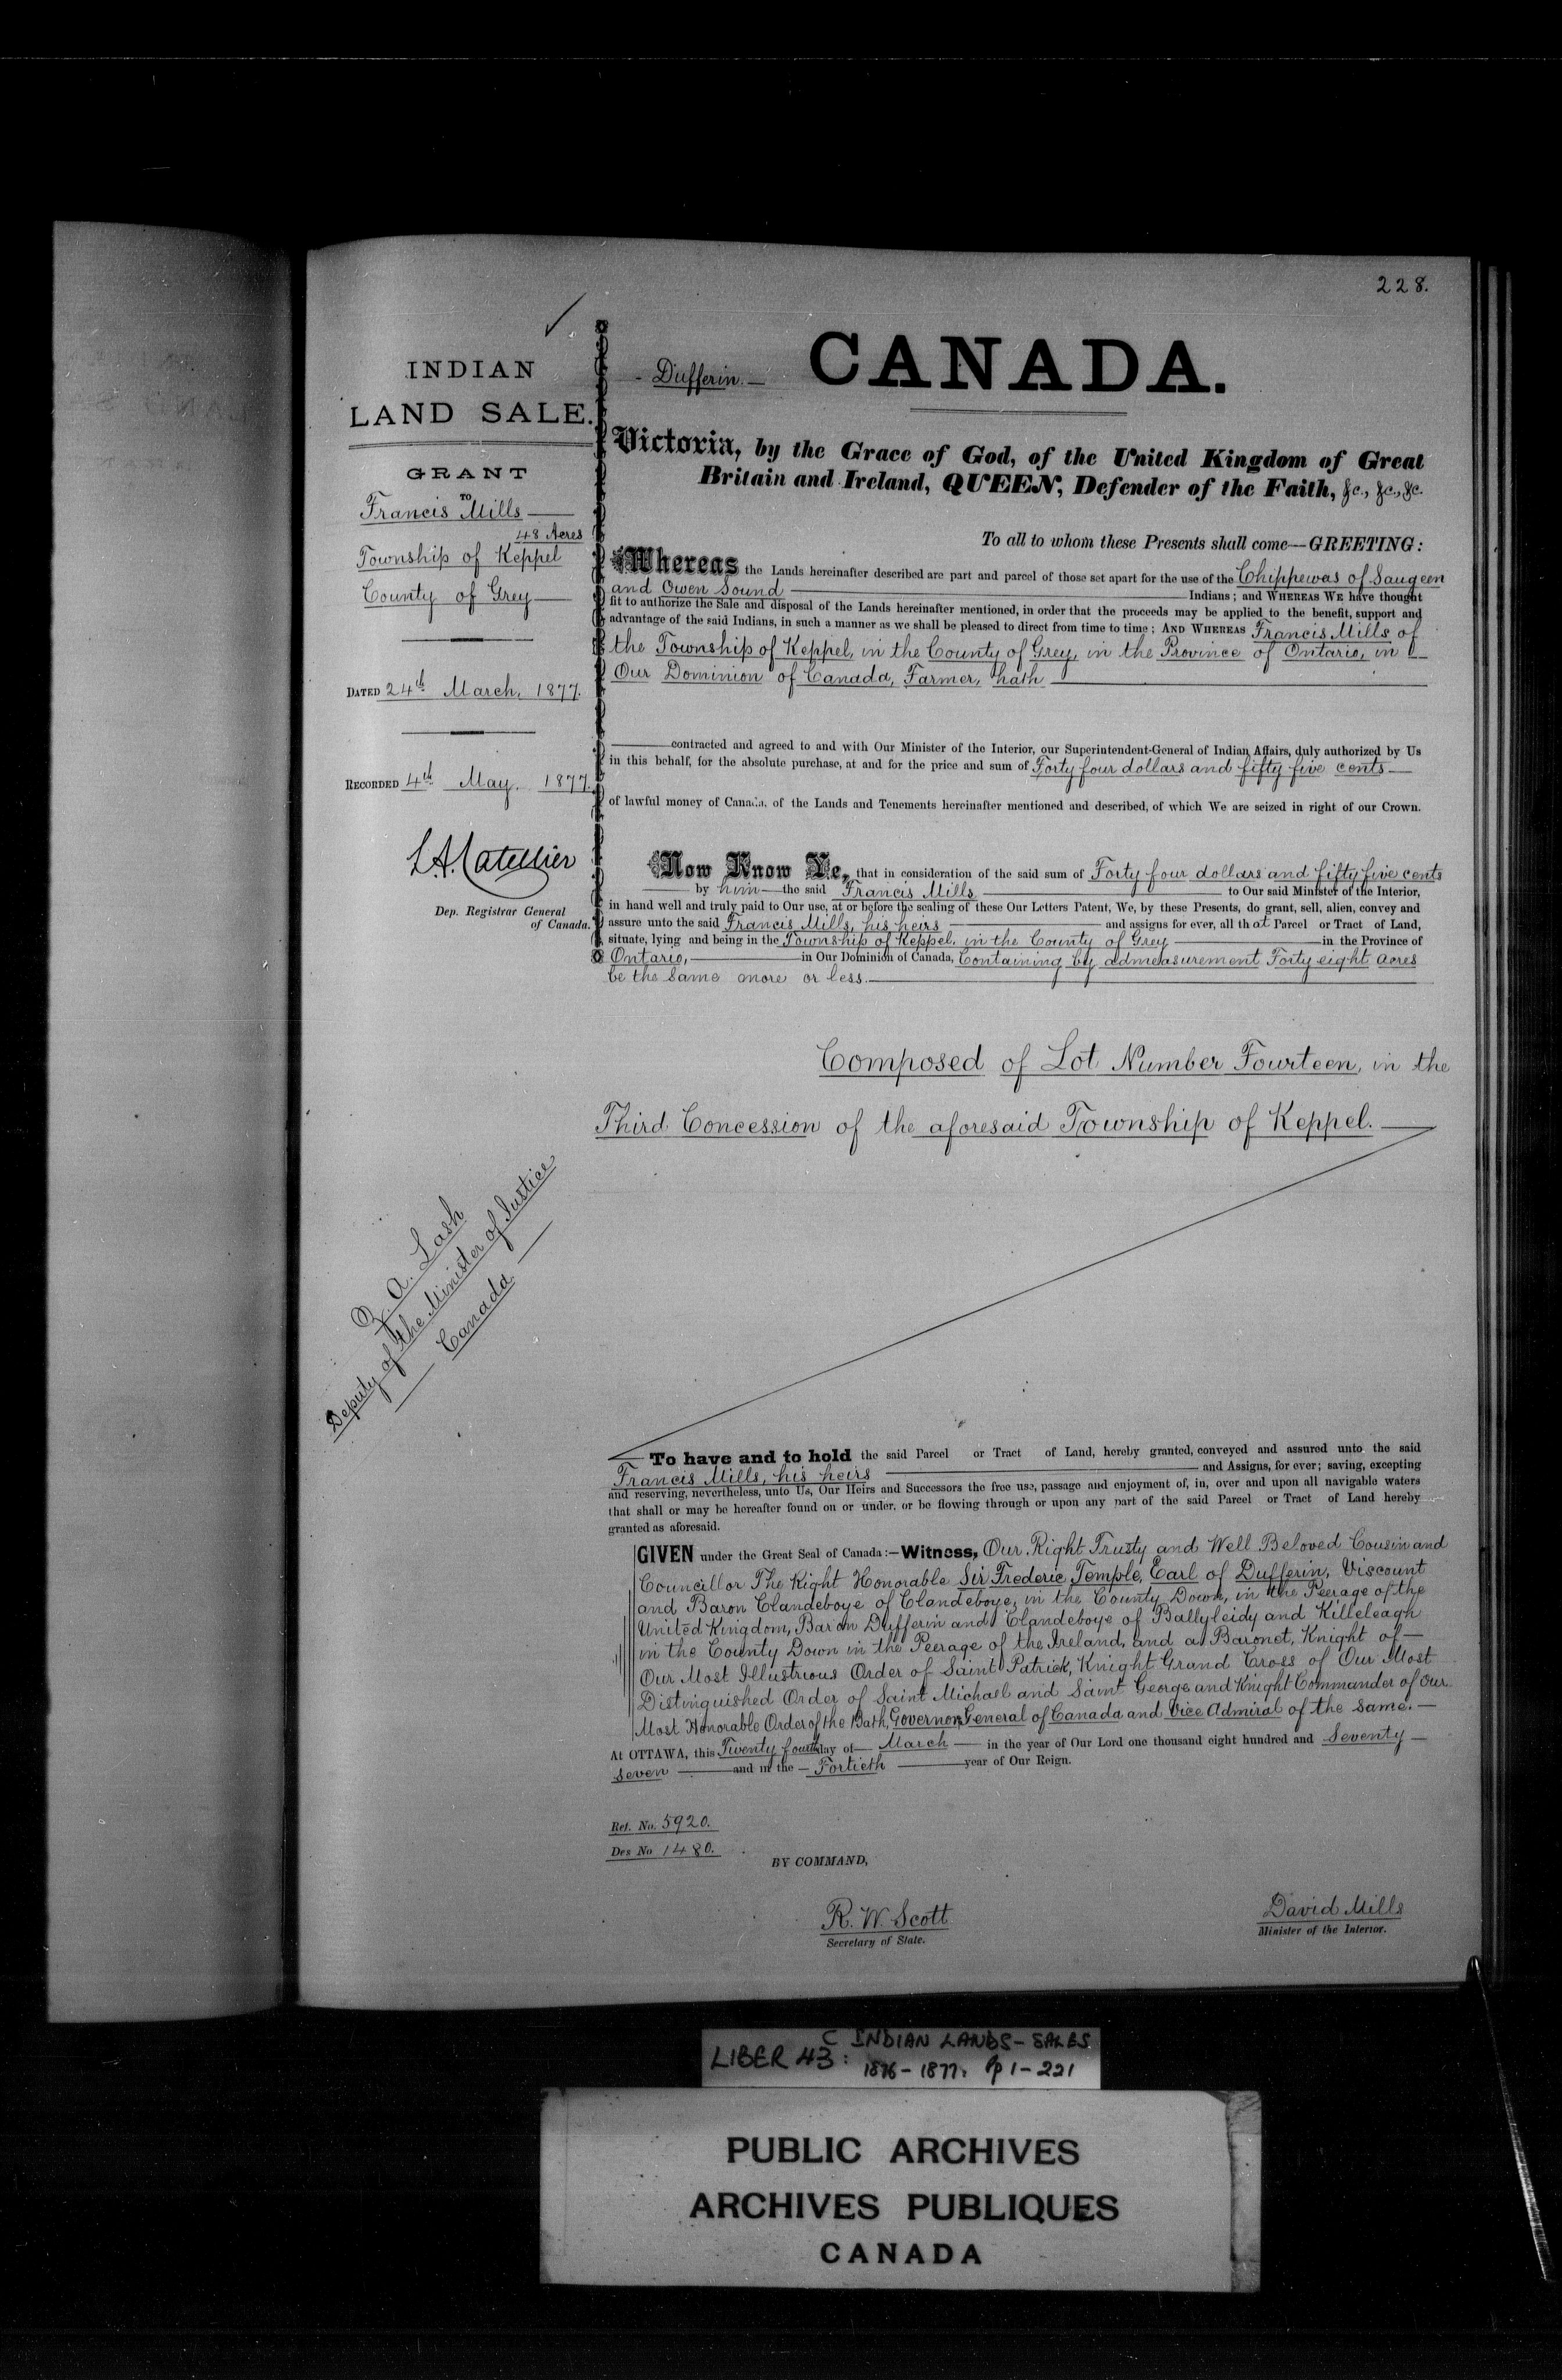 228.
INDIAN
LAND SALE.
GRANT
TO
Francis Mills
48 Acres
Township of Keppel
County of Grey
DATED 24th March, 1877.
RECORDED 4th May, 1877.
L.A. Catellier
Dep. Registrar General
of Canada.
Z. A. Lash
Deputy of the Minister of Justice
Canada
- Dufferin. -
CANADA.
Victoria, by the Grace of God, of the United Kingdom of Great
Britain and Ireland, QUEEN, Defender of the Faith, &c., &c., &c.
To all to whom these Presents shall come—GREETING:
Whereas the Lands hereinafter described are part and parcel of those set apart for the use of the Chippewas of Saugeen
and Owen Sound Indians; and WHEREAS WE have thought
fit to authorize the Sale and disposal of the Lands hereinafter mentioned, in order that the proceeds may be applied to the benefit, support and
advantage of the said Indians, in such a manner as we shall be pleased to direct from time to time; AND WHEREAS Francis Mills of
the Township of Keppel, in the County of Grey, in the Province of Ontario, in
Our Dominion of Canada, Farmer, hath
contracted and agreed to and with Our Minister of the Interior, our Superintendent-General of Indian Affairs, duly authorized by Us
in this behalf, for the absolute purchase, at and for the price and sum of Forty four dollars and fifty five cents
of lawful money of Canada, of the Lands and Tenements hereinafter mentioned and described, of which We are seized in right of our Crown.
Now Know Ye, that in consideration of the said sum of Forty four dollars and fifty five cents
by him the said Francis Mills to Our said Minister of the Interior,
in hand well and truly paid to Our use, at or before the sealing of these Our Letters Patent, We, by these Presents, do grant, sell, alien, convey and
assure unto the said Francis Mills, his heirs and assigns for ever, all that Parcel or Tract of Land,
situate, lying and being in the Township of Keppel, in the County of Grey in the Province of
Ontario, in Our Dominion of Canada, Containing by admeasurement Forty eight acres
be the same more or less.
Composed of Lot Number Fourteen, in the
Third Concession of the aforesaid Township of Keppel.
To have and to hold the said Parcel or Tract of Land, hereby granted, conveyed and assured unto the said
Francis Mills, his heirs and Assigns, for ever; saving, excepting
and reserving, nevertheless, unto Us, Our Heirs and Successors the free use, passage and enjoyment of, in, over and upon all navigable waters
that shall or may be hereafter found on or under, or be flowing through or upon any part of the said Parcel or Tract of Land hereby
granted as aforesaid.
GIVEN under the Great Seal of Canada:—Witness, Our Right Trusty and Well Beloved Cousin and
Councillor The Right Honorable Sir Frederic Temple, Earl of Dufferin, Viscount
and Baron Clandeboye of Clandeboye, in the County Down, in the Peerage of the
United Kingdom, Baron Dufferin and Clandeboye of Ballyleidy and Killeleagh
in the County Down in the Peerage of the Ireland, and a Baronet, Knight of
Our Most Illustrious Order of Saint Patrick, Knight Grand Cross of Our Most
Distinguished Order of Saint Michael and Saint George and Knight Commander of Our
Most Honorable Order of the Bath, Governor General of Canada and Vice Admiral of the same.
At OTTAWA, this Twenty fourth day of March in the year of Our Lord one thousand eight hundred and Seventy
Seven and in the Fortieth year of Our Reign.
Ref. No. 5920.
Des No 1480.
BY COMMAND,
R. W. Scott
Secretary of State.
David Mills
Minister of the Interior.
LIBER 43: C INDIAN LANDS - SALES
1876-1877. pp 1-221
PUBLIC ARCHIVES
ARCHIVES PUBLIQUES
CANADA